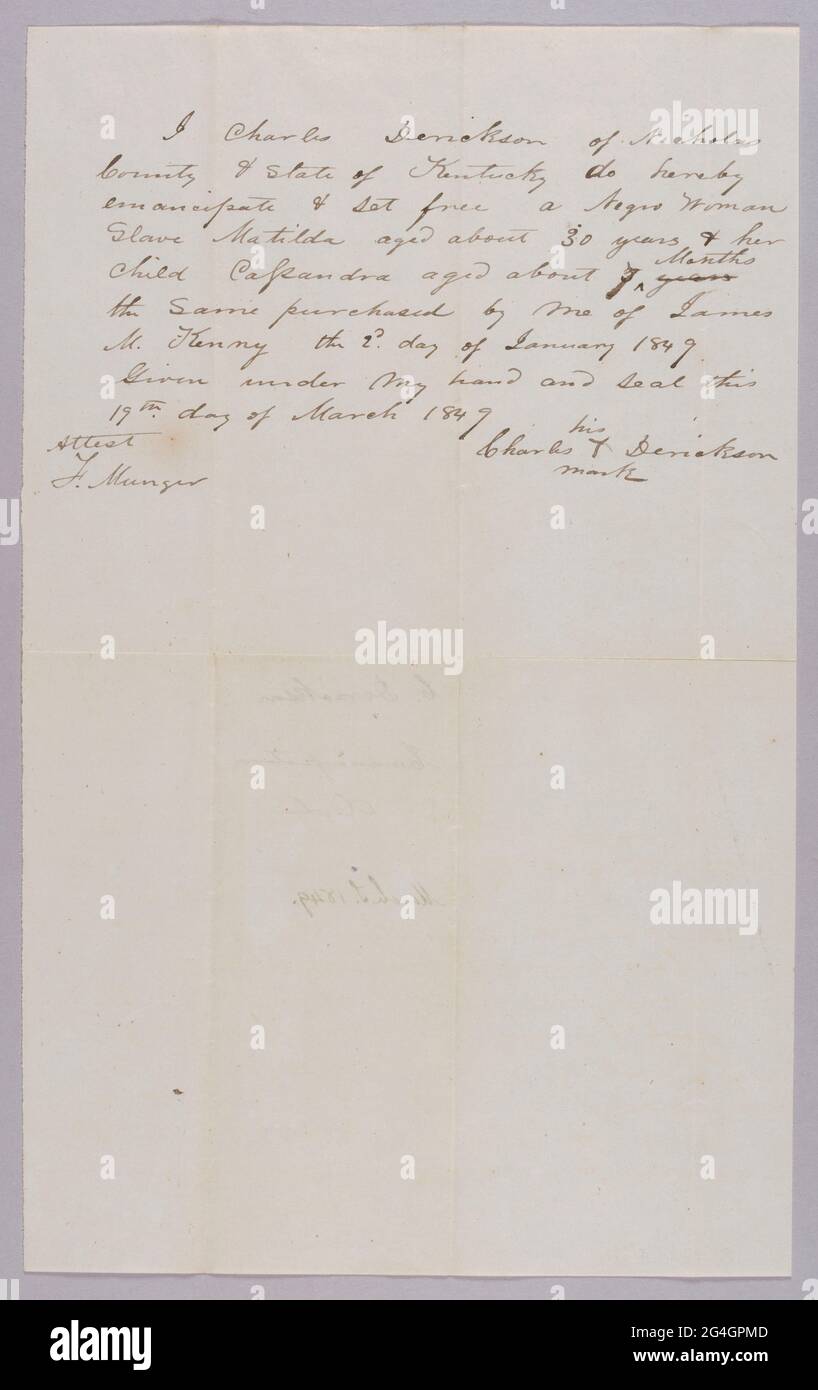 I Charles Derickson of Nicholas
County & State of Kentucky do hereby
emancipate & set free a Negro Woman
Slave Matilda aged about 30 years & her
Months
child Cassandra aged about ‸ years
the same purchased by me of James
M. Kenny the 2d. day of January 1849
Given under my hand and seal this
19th day of March 1849
Attest
F. Munger
his
Charles X Derickson
mark
C. Derickson
1849.
alamy
Image ID: 2G4GPMD
www.alamy.com